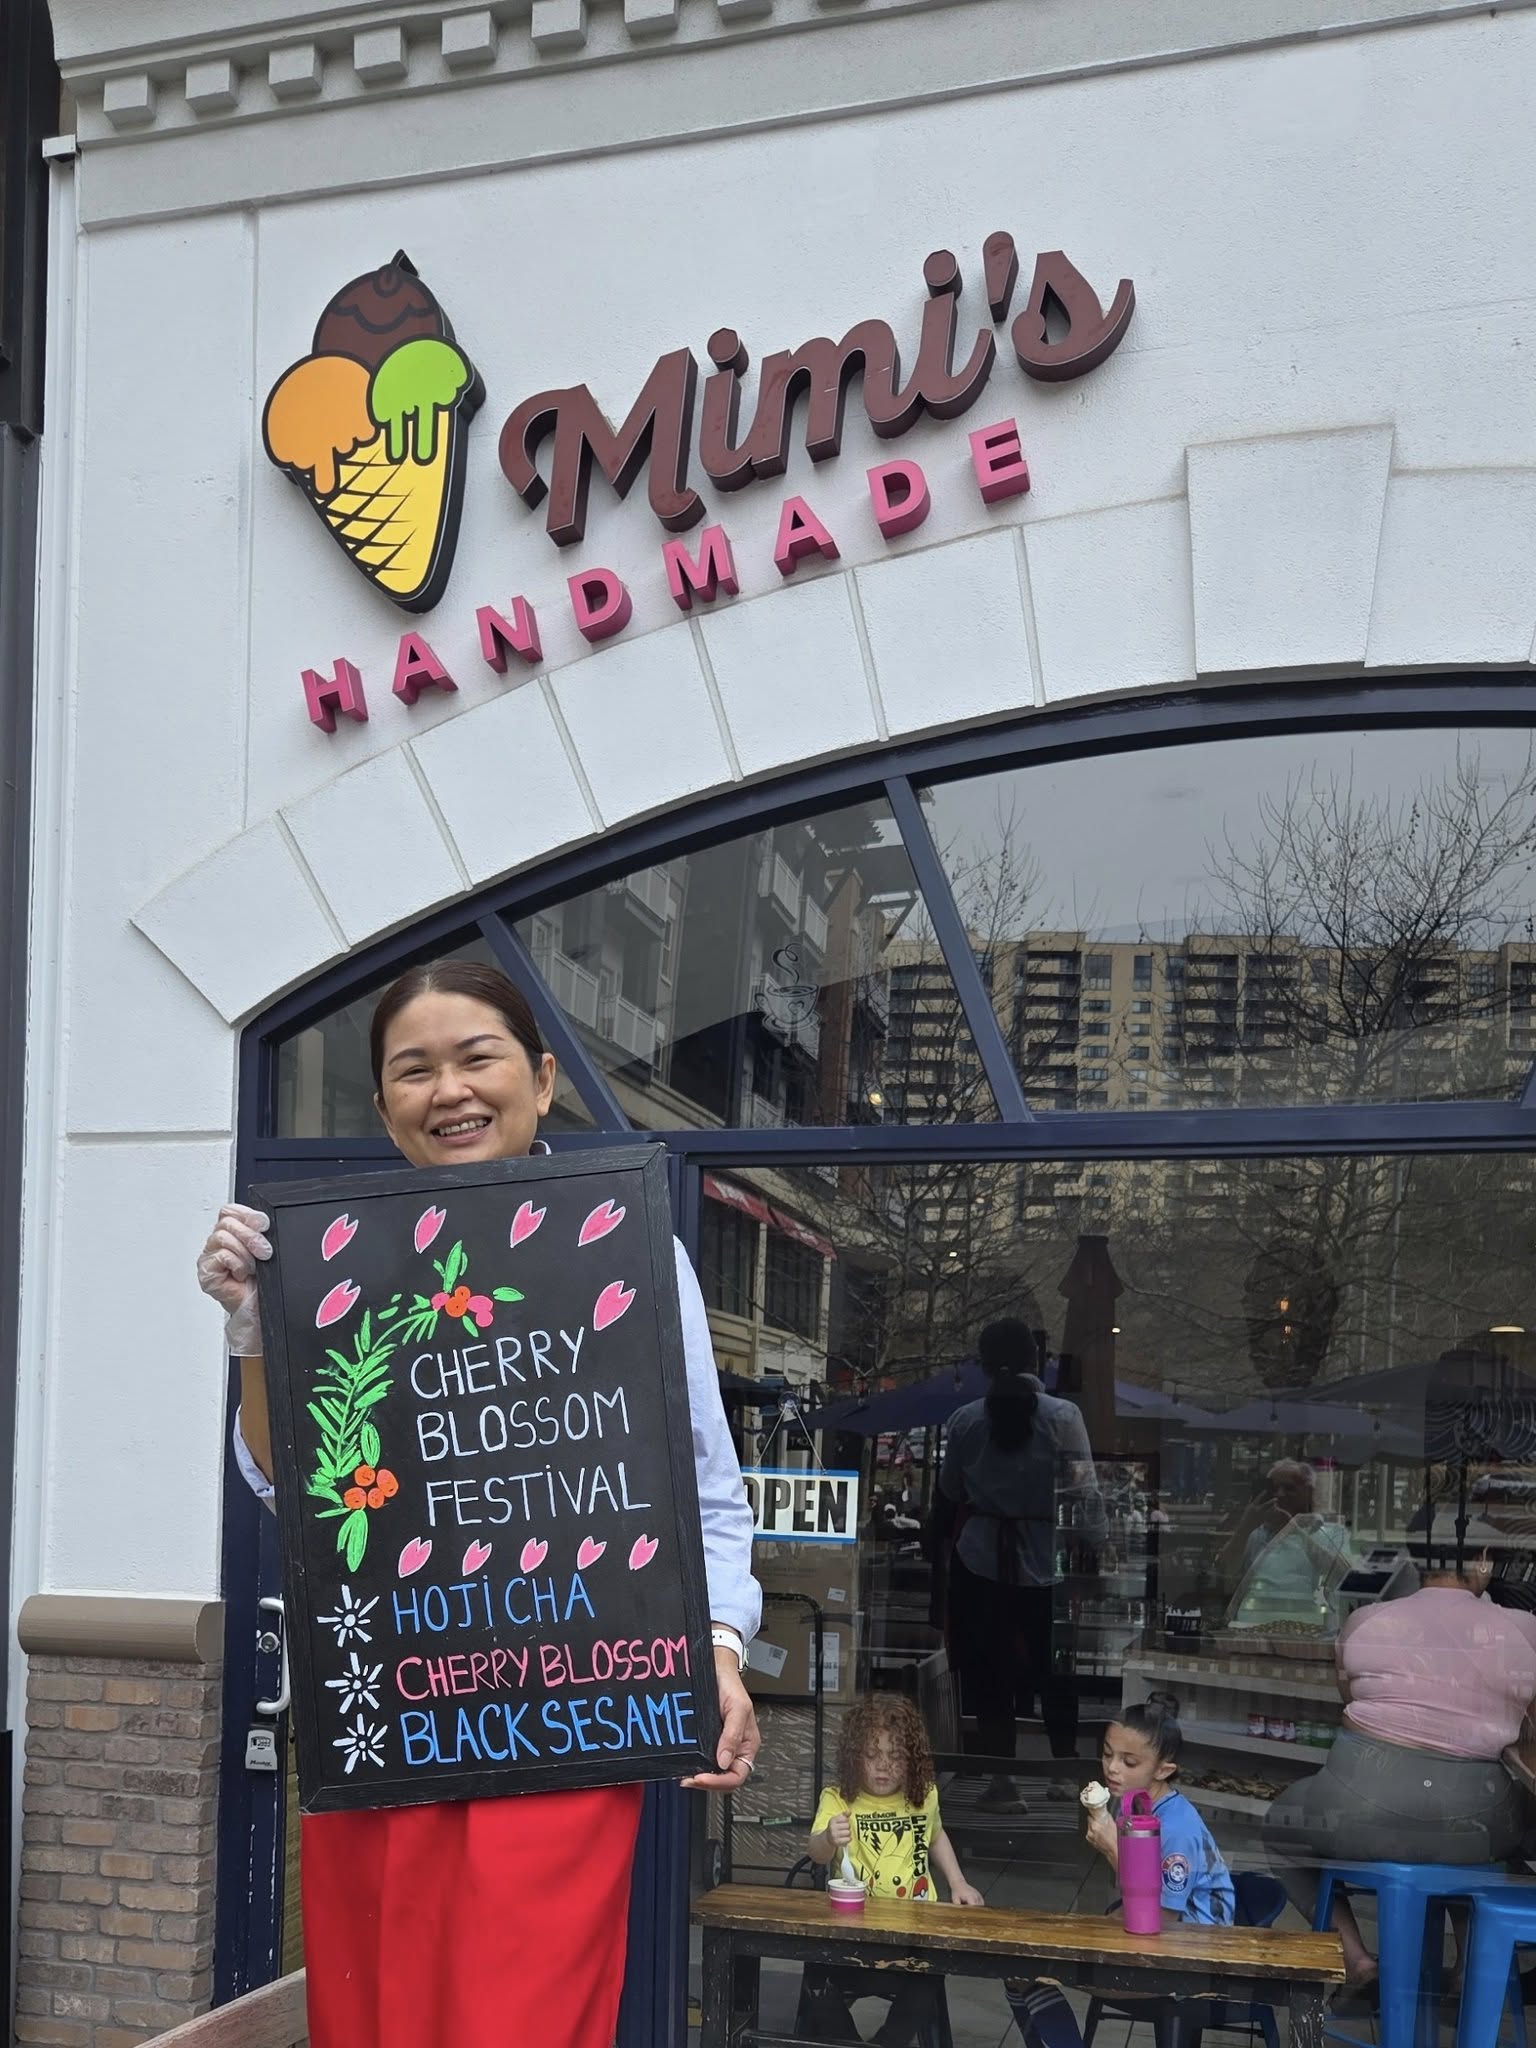 Mimi's
HANDMADE
CHERRY
BLOSSOM
FESTIVAL
HOJICHA
CHERRY BLOSSOM
BLACK SESAME
OPEN
POKÉMON
#0025
PIKACHU